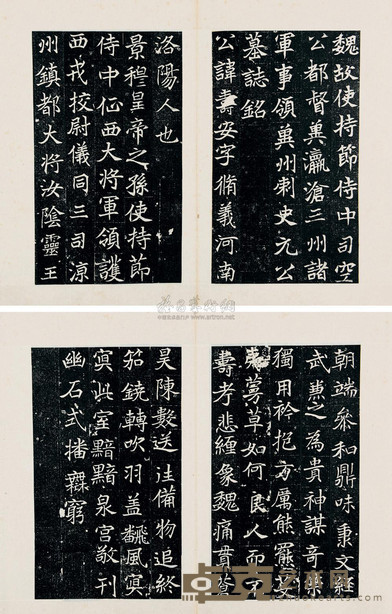 魏故使持節侍中司空
公都督冀瀛滄三州諸
軍事領冀州刺史元公
墓誌銘
公諱壽安字脩義河南
洛陽人也
景穆皇帝之孫使持節
侍中征西大將軍領護
西戎校尉儀同三司涼
州鎮都大將汝陰靈王
朝端參和鼎味秉文經
武惠之為貴神謀奇策
獨用衿抱方厲熊羆克
夷莠草如何良人而不
壽考悲纏象魏痛貫蒼
昊陳數送往備物追終
笳鐃轉吹羽盖飜風冥
冥此室黯黯泉宮敬刊
幽石式播無窮